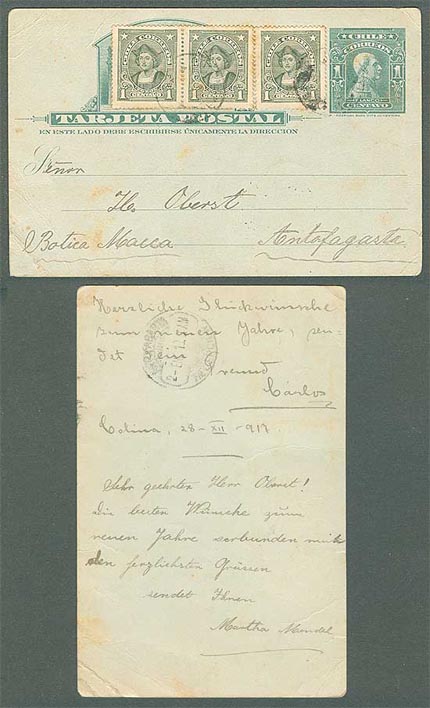 CHILE CORREOS CHILE CORREOS CHILE CORREOS CHILE
CORREOS
1 CENTAVO 1 1 CENTAVO 1 1 CENTAVO 1 1 CENTAVO 1
TARJETA POSTAL
EN ESTE LADO DEBE ESCRIBIRSE ÚNICAMENTE LA DIRECCION
Señor
H. Oberst
Botica Macca Antofagasta
Herzliche Glückwünsche
zum neuen Jahre, sen-
det ein
Freund
Carlos
Colina, 28-XII-917
Sehr geehrten Herr Oberst!
Die besten Wünsche zum
neuen Jahre verbunden mit
den herzlichsten Grüssen
sendet Ihnen
Martha Mendel